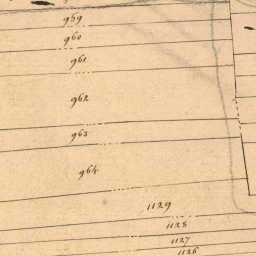 959
960
961
962
963
964
1129
1128
1127
1126